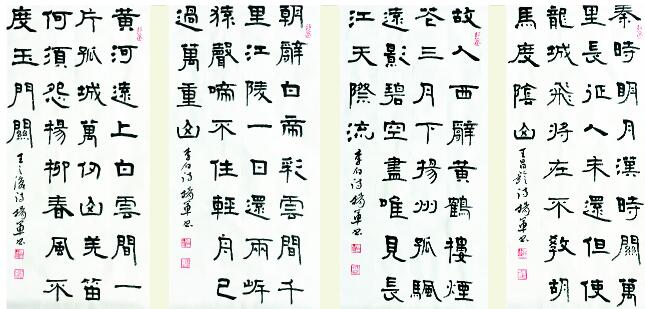 秦時明月漢時關萬
里長征人未還但使
龍城飛將在不教胡
馬度陰山
王昌齡詩楊軍書
故人西辭黃鶴樓煙
花三月下揚州孤颿
遠影碧空盡唯見長
江天際流
李白詩楊軍書
朝辭白帝彩雲間千
里江陵一日還兩岸
猿聲啼不住輕舟已
過萬重山
李白詩楊軍書
黃河遠上白雲間一
片孤城萬仞山羌笛
何須怨楊柳春風不
度玉門關
王之渙詩楊軍書